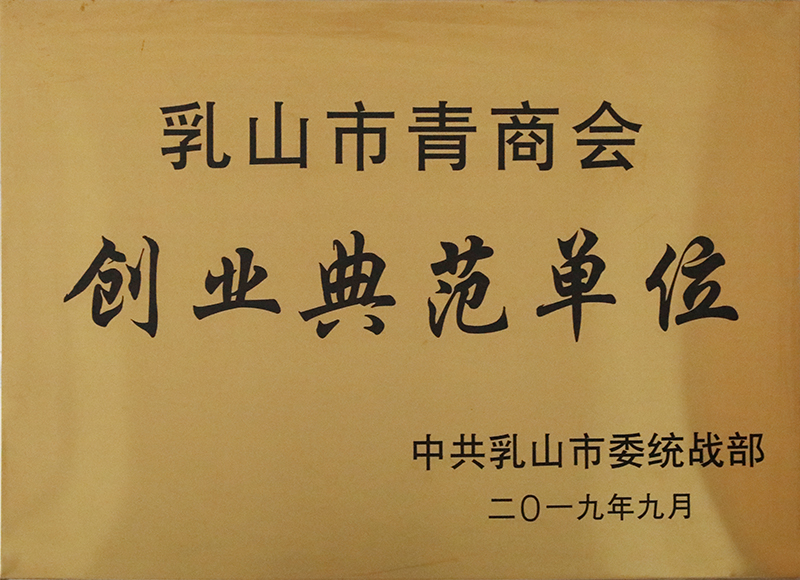 乳山市青商会
创业典范单位
中共乳山市委统战部
二〇一九年九月